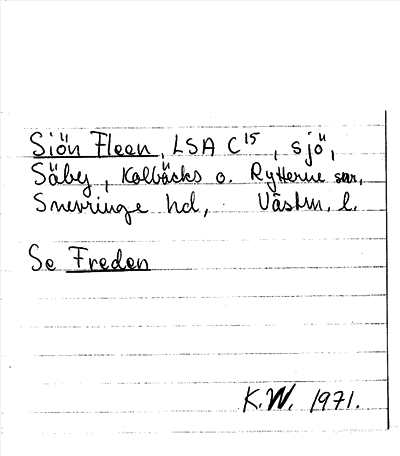 Siön Fleen, LSA C15, sjö,
Säby, Kolbäcks o. Rytterne snr,
Snevringe hd, Västm. l.
Se Freden
K.W. 1971.